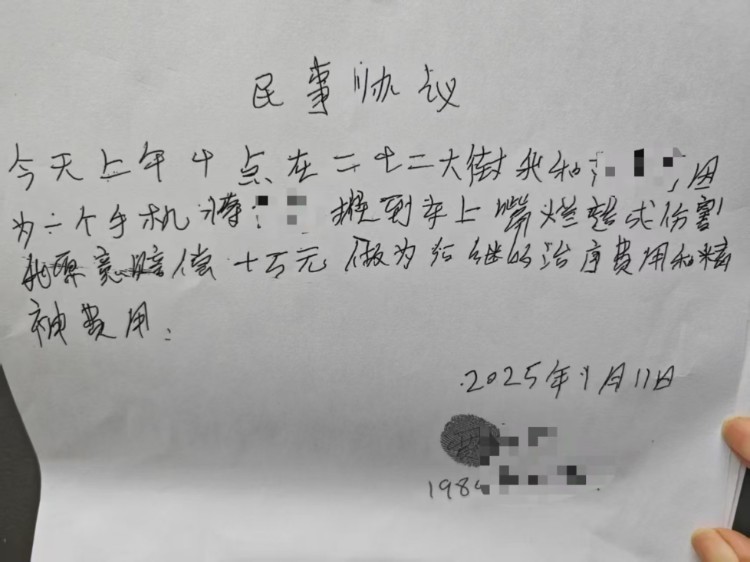 民事协议
今天上午十点在二七二大街我和 因
为一个手机将 摁到车上嘴烂造成伤害
我愿意赔偿十万元做为后继的治疗费用和精
神费用.
.2025年9月11日
198